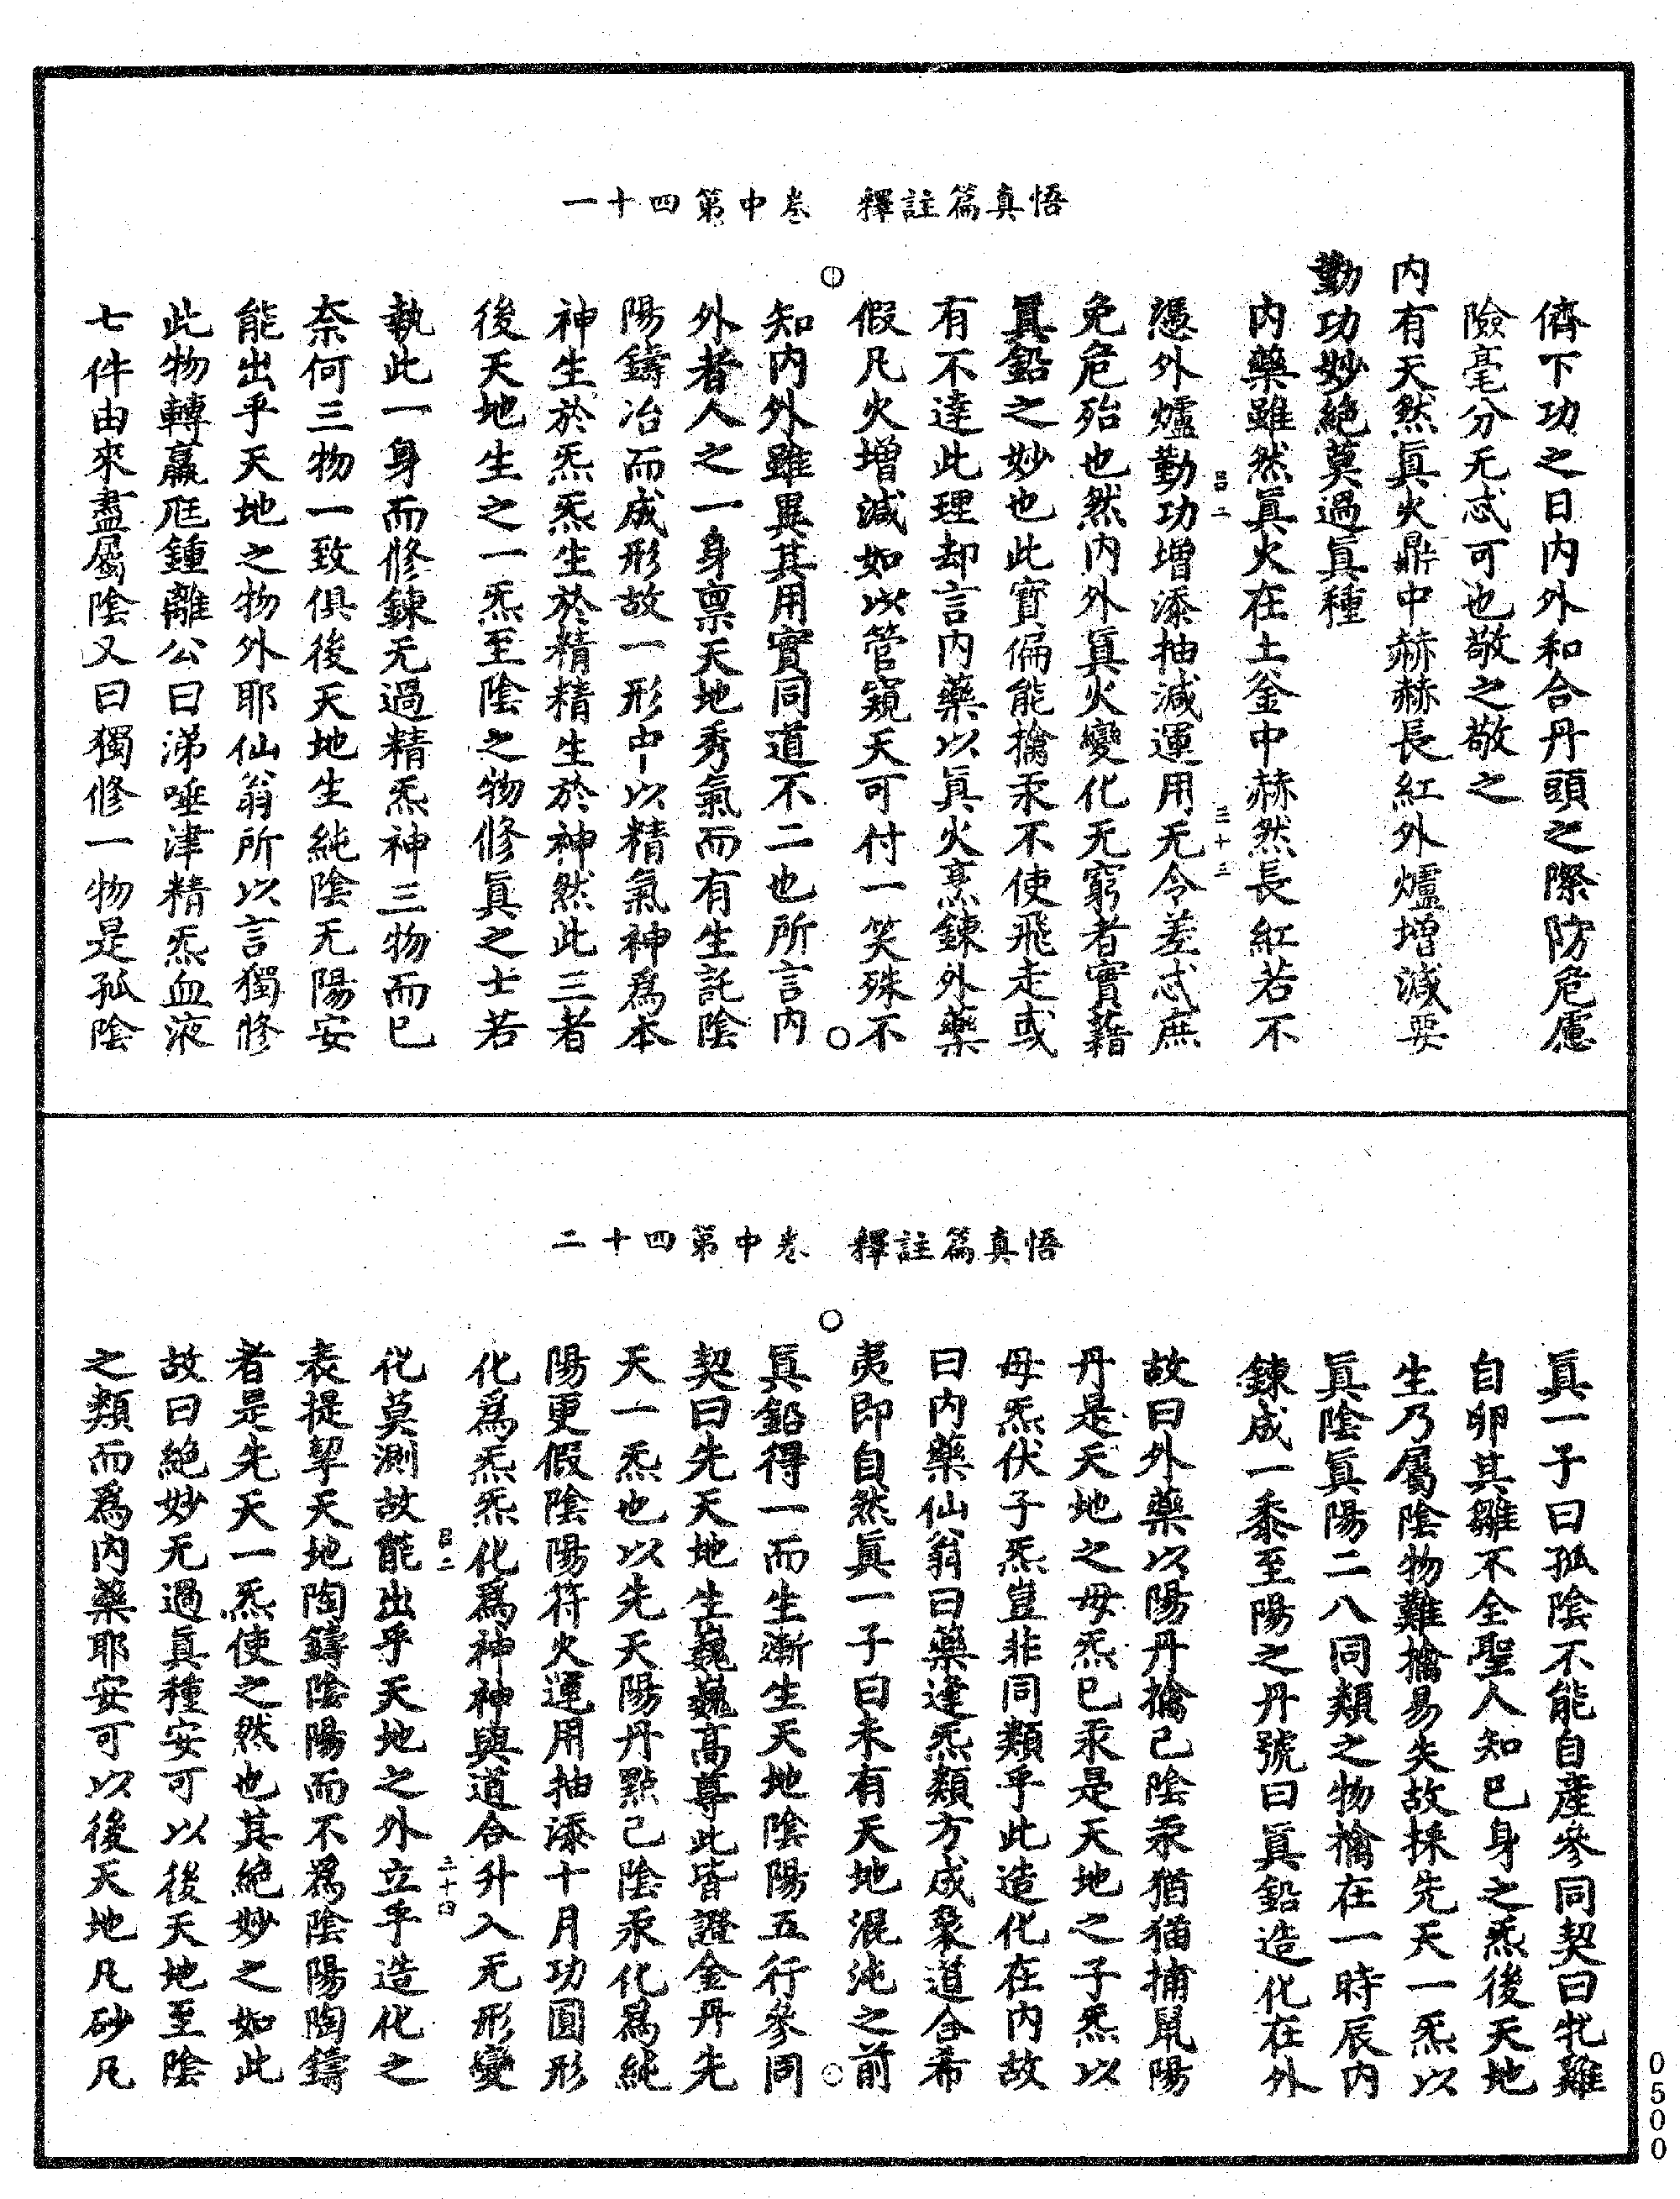 悟真篇註釋　卷中第四十一
儕下功之日内外和合丹頭之際防危慮
險毫分无忒可也敬之敬之
内有天然真火鼎中赫赫長紅外爐增減要
勤功妙絶莫過真種
内藥雖然真火在土釜中赫然長紅若不
憑外爐勤功增添抽減運用无令差忒庶
免危殆也然内外真火變化无窮者實藉
真鉛之妙也此寶偏能擒汞不使飛走或
有不達此理却言内藥以真火烹鍊外藥
假凡火增減如以管窺天可付一笑殊不
知内外雖異其用實同道不二也所言内
外者人之一身稟天地秀氣而有生託陰
陽鑄冶而成形故一形中以精氣神爲本
神生於炁炁生於精精生於神然此三者
後天地生之一炁至陰之物修真之士若
執此一身而修鍊无過精炁神三物而已
奈何三物一致俱後天地生純陰无陽安
能出乎天地之物外耶仙翁所以言獨修
此物轉羸尫鍾離公曰涕唾津精炁血液
七件由來盡屬陰又曰獨修一物是孤陰
二
三十三
悟真篇註釋　卷中第四十二
真一子曰孤陰不能自産參同契曰牝雞
自卵其雛不全聖人知已身之炁後天地
生乃屬陰物難擒易失故採先天一炁以
真陰真陽二八同類之物擒在一時辰内
鍊成一黍至陽之丹號曰真鉛造化在外
故曰外藥以陽丹擒己陰汞猶猫捕鼠陽
丹是天地之母炁已汞是天地之子炁以
母炁伏子炁豈非同類乎此造化在内故
曰内藥仙翁曰藥逢炁類方成象道合希
夷即自然真一子曰未有天地混沌之前
真鉛得一而生漸生天地陰陽五行參同
契曰先天地生巍巍高尊此皆證金丹先
天一炁也以先天陽丹點己陰汞化爲純
陽更假陰陽符火運用抽添十月功圓形
化爲炁炁化爲神神與道合升入无形變
化莫測故能出乎天地之外立乎造化之
表提挈天地陶鑄陰陽而不爲陰陽陶鑄
者是先天一炁使之然也其絶妙之如此
故曰絶妙无過真種安可以後天地至陰
之類而爲内藥耶安可以後天地凡砂凡
二
三十四
0500